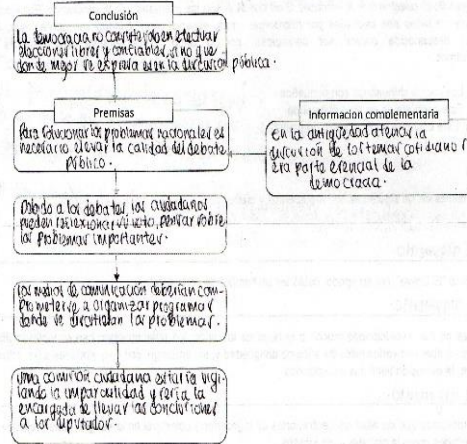 Conclusión
La democracia no consiste sólo en efectuar
elecciones libres y confiables, si no que
donde mejor se expresa es en la discusión pública.
Premisas
Para solucionar los problemas nacionales es
necesario elevar la calidad del debate
público.
Información complementaria
En la antigüedad ateniense la
discusión de los temas cotidianos
era parte esencial de la
democracia.
Debido a los debates, los ciudadanos
pueden reflexionar su voto, pensar sobre
los problemas importantes.
Los medios de comunicación deberían com-
prometerse a organizar programas
donde se discutirían los problemas.
Una comisión ciudadana estaría vigi-
lando la imparcialidad y sería la
encargada de llevar las conclusiones
a los diputados.